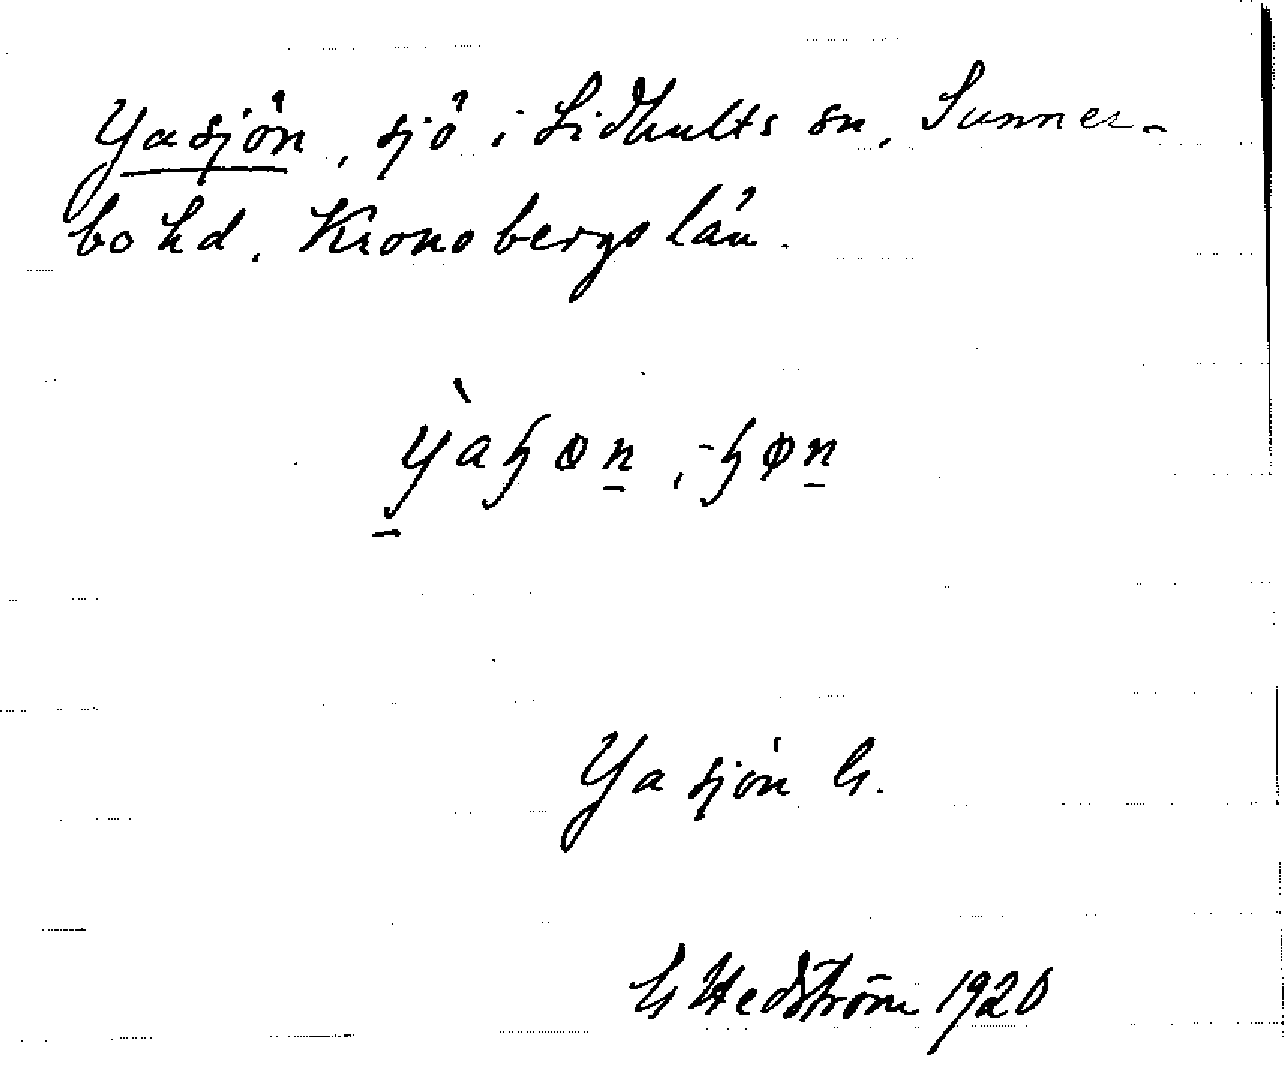 Yasjön, sjö i Lidhults sn, Sunner-
bo hd. Kronobergs län.
Yasjön G.
G Hedström 1920